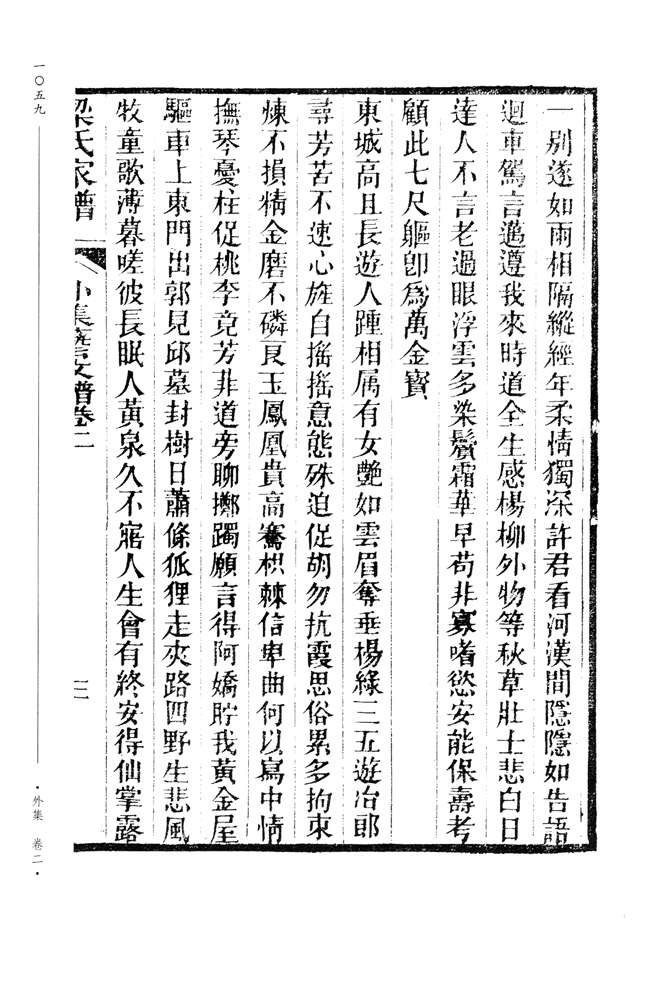 一別遂如雨相隔縱經年柔情獨深許君看河漢間隱隱如告語
迴車駕言邁遵我來時道全生感楊柳外物等秋草壯士悲白日
達人不言老過眼浮雲多染鬢霜華早苟非寡嗜慾安能保壽考
顧此七尺軀卽爲萬金寶
東城高且長遊人踵相属有女艷如雲眉奪垂楊綠三五遊冶郎
尋芳苦不速心旌自搖搖意態殊迫促胡勿抗霞思俗累多拘束
煉不損精金磨不磷良玉鳳凰貴高騫枳棘信卑曲何以寫中情
撫琴憂柱促桃李竟芳菲道旁聊擲躅願言得阿嬌貯我黃金屋
驅車上東門出郭見邱墓封樹日蕭條狐狸走夾路四野生悲風
牧童歌薄暮嗟彼長眠人黃泉久不寤人生會有終安得仙掌露
梁氏家譜 外集藝文譜卷二 三
一〇五九
·外集 卷二·